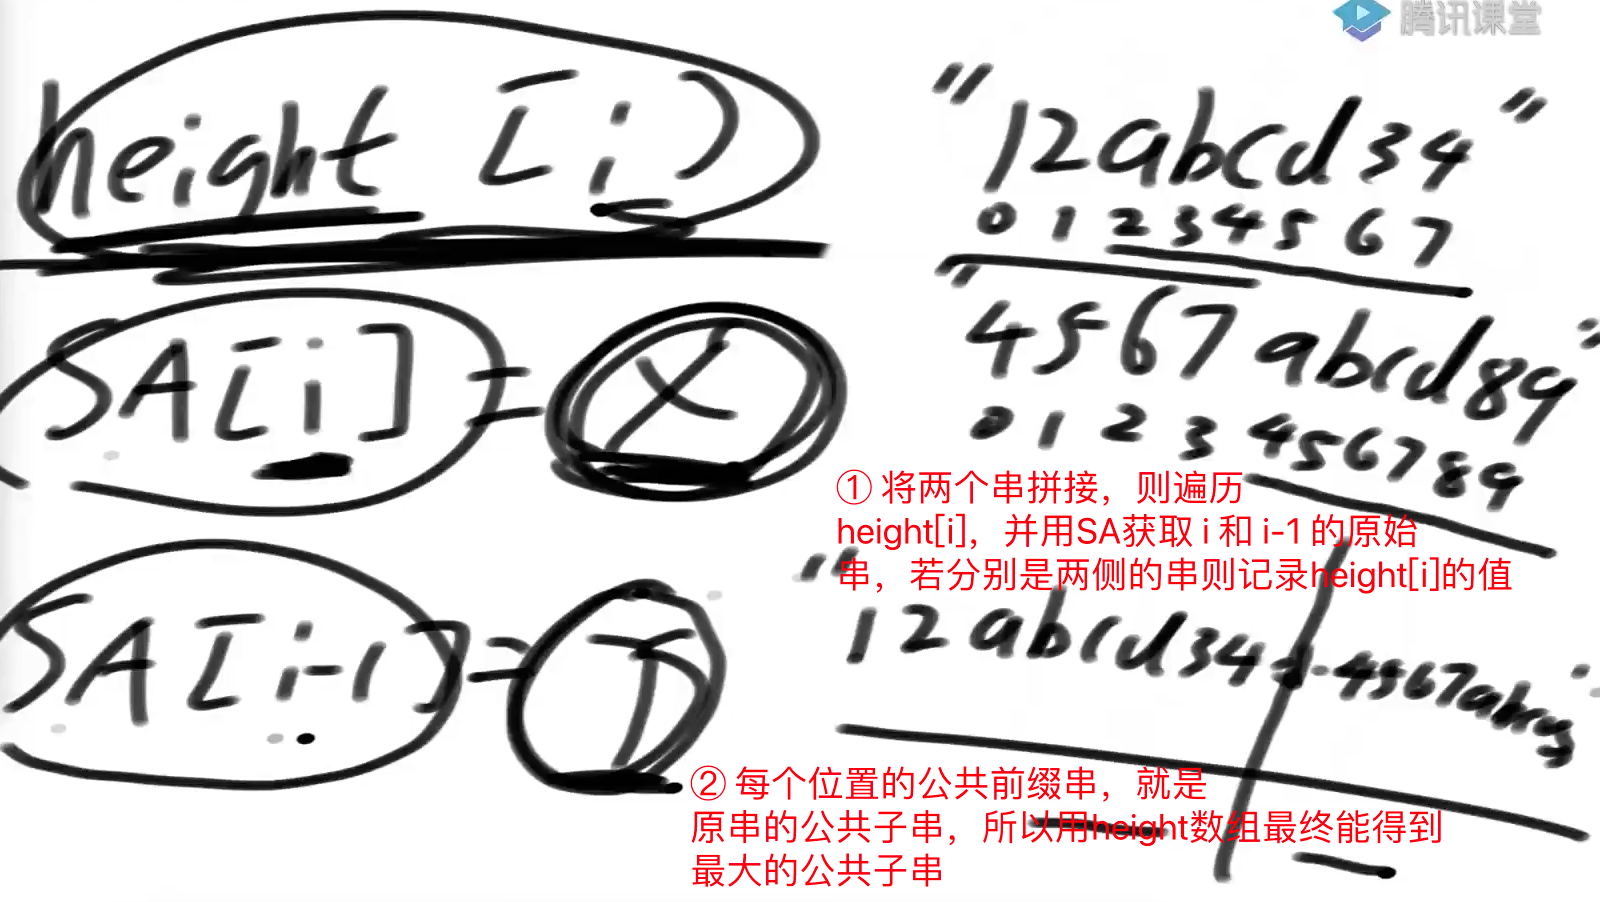 腾讯课堂
height [i]
"12abcd34"
0 1 2 3 4 5 6 7
"4567abcd89"
0 1 2 3 4 5 6 7 8 9
SA[i] = X
① 将两个串拼接，则遍历
height[i]，并用SA获取 i 和 i-1 的原始
串，若分别是两侧的串则记录height[i]的值
SA[i-1] =
"12abcd34
4567abcd
② 每个位置的公共前缀串，就是
原串的公共子串，所以用height数组最终能得到
最大的公共子串